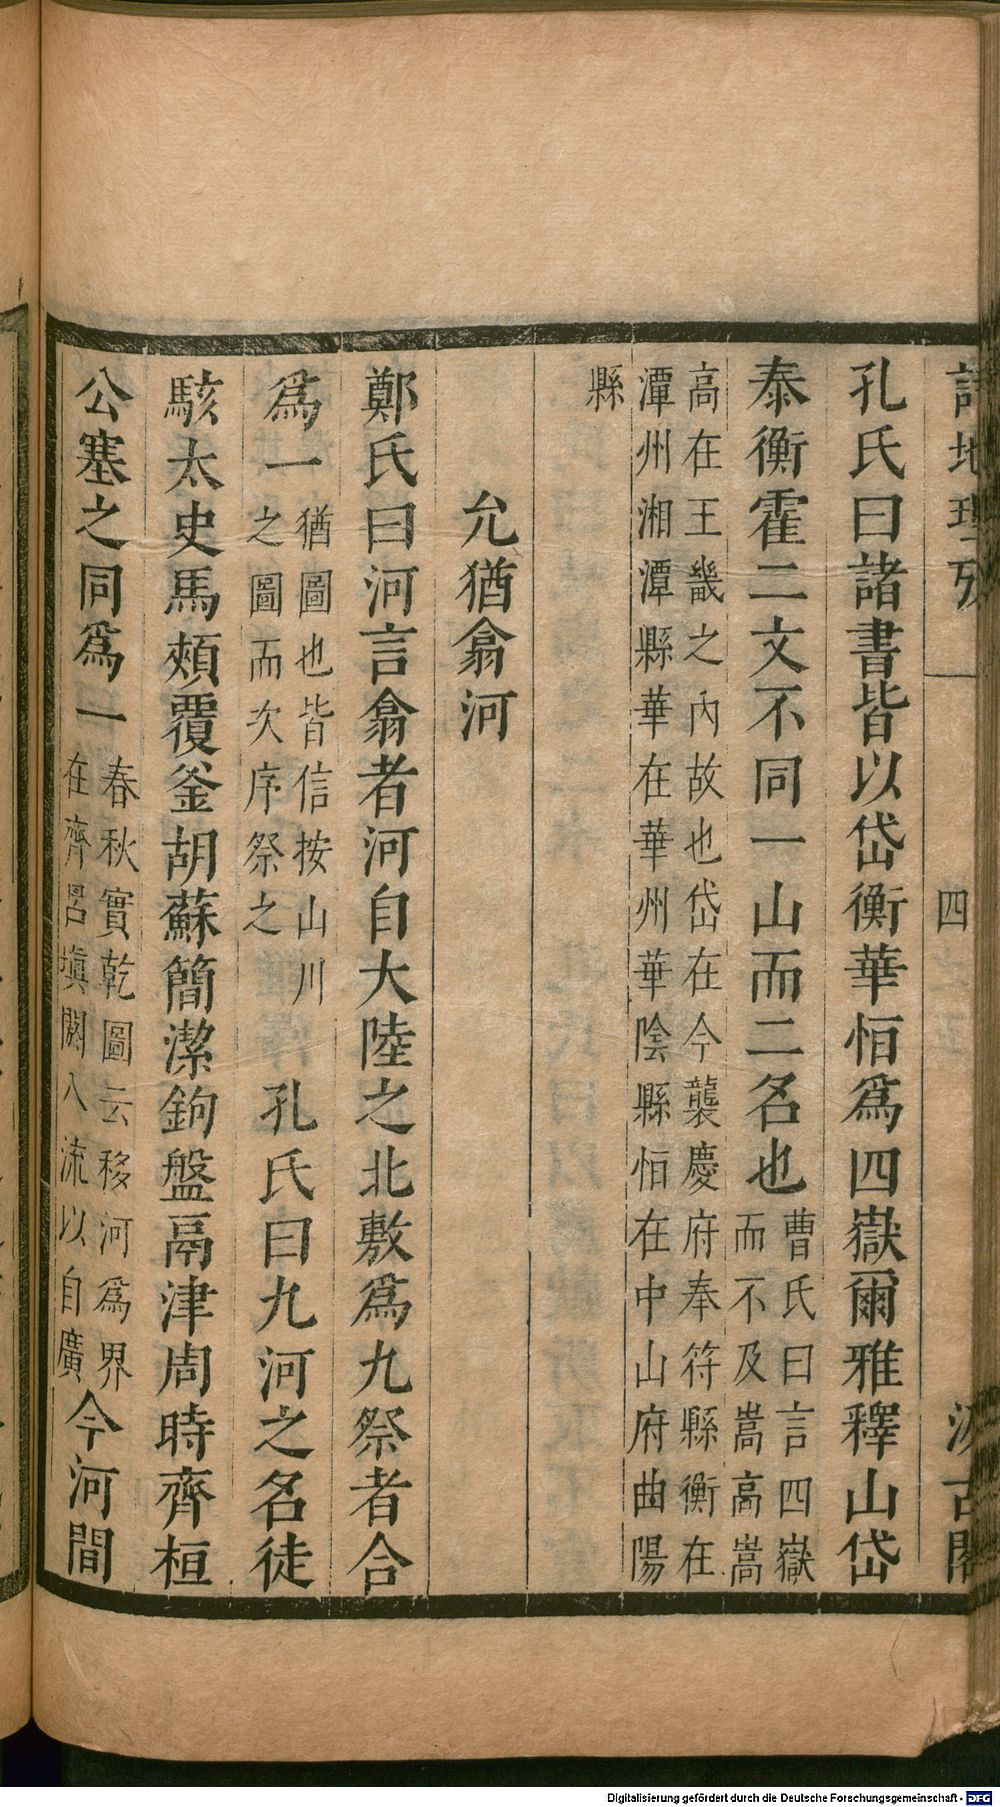 詩地理攷
四
汲古閣
孔氏曰諸書皆以岱衡華恒爲四嶽爾雅釋山岱
泰衡霍二文不同一山而二名也曹氏曰言四嶽
而不及嵩高嵩
高在王畿之內故也岱在今襲慶府奉符縣衡在
潭州湘潭縣華在華州華陰縣恒在中山府曲陽
縣
允猶翕河
鄭氏曰河言翕者河自大陸之北敷爲九祭者合
爲一猶圖也皆信按山川
之圖而次序祭之
孔氏曰九河之名徒
駭太史馬頰覆釜胡蘇簡潔鉤盤鬲津周時齊桓
公塞之同爲一春秋實乾圖云移河爲界
在齊呂填閼八流以自廣
今河間
Digitalisierung gefördert durch die Deutsche Forschungsgemeinschaft - DFG